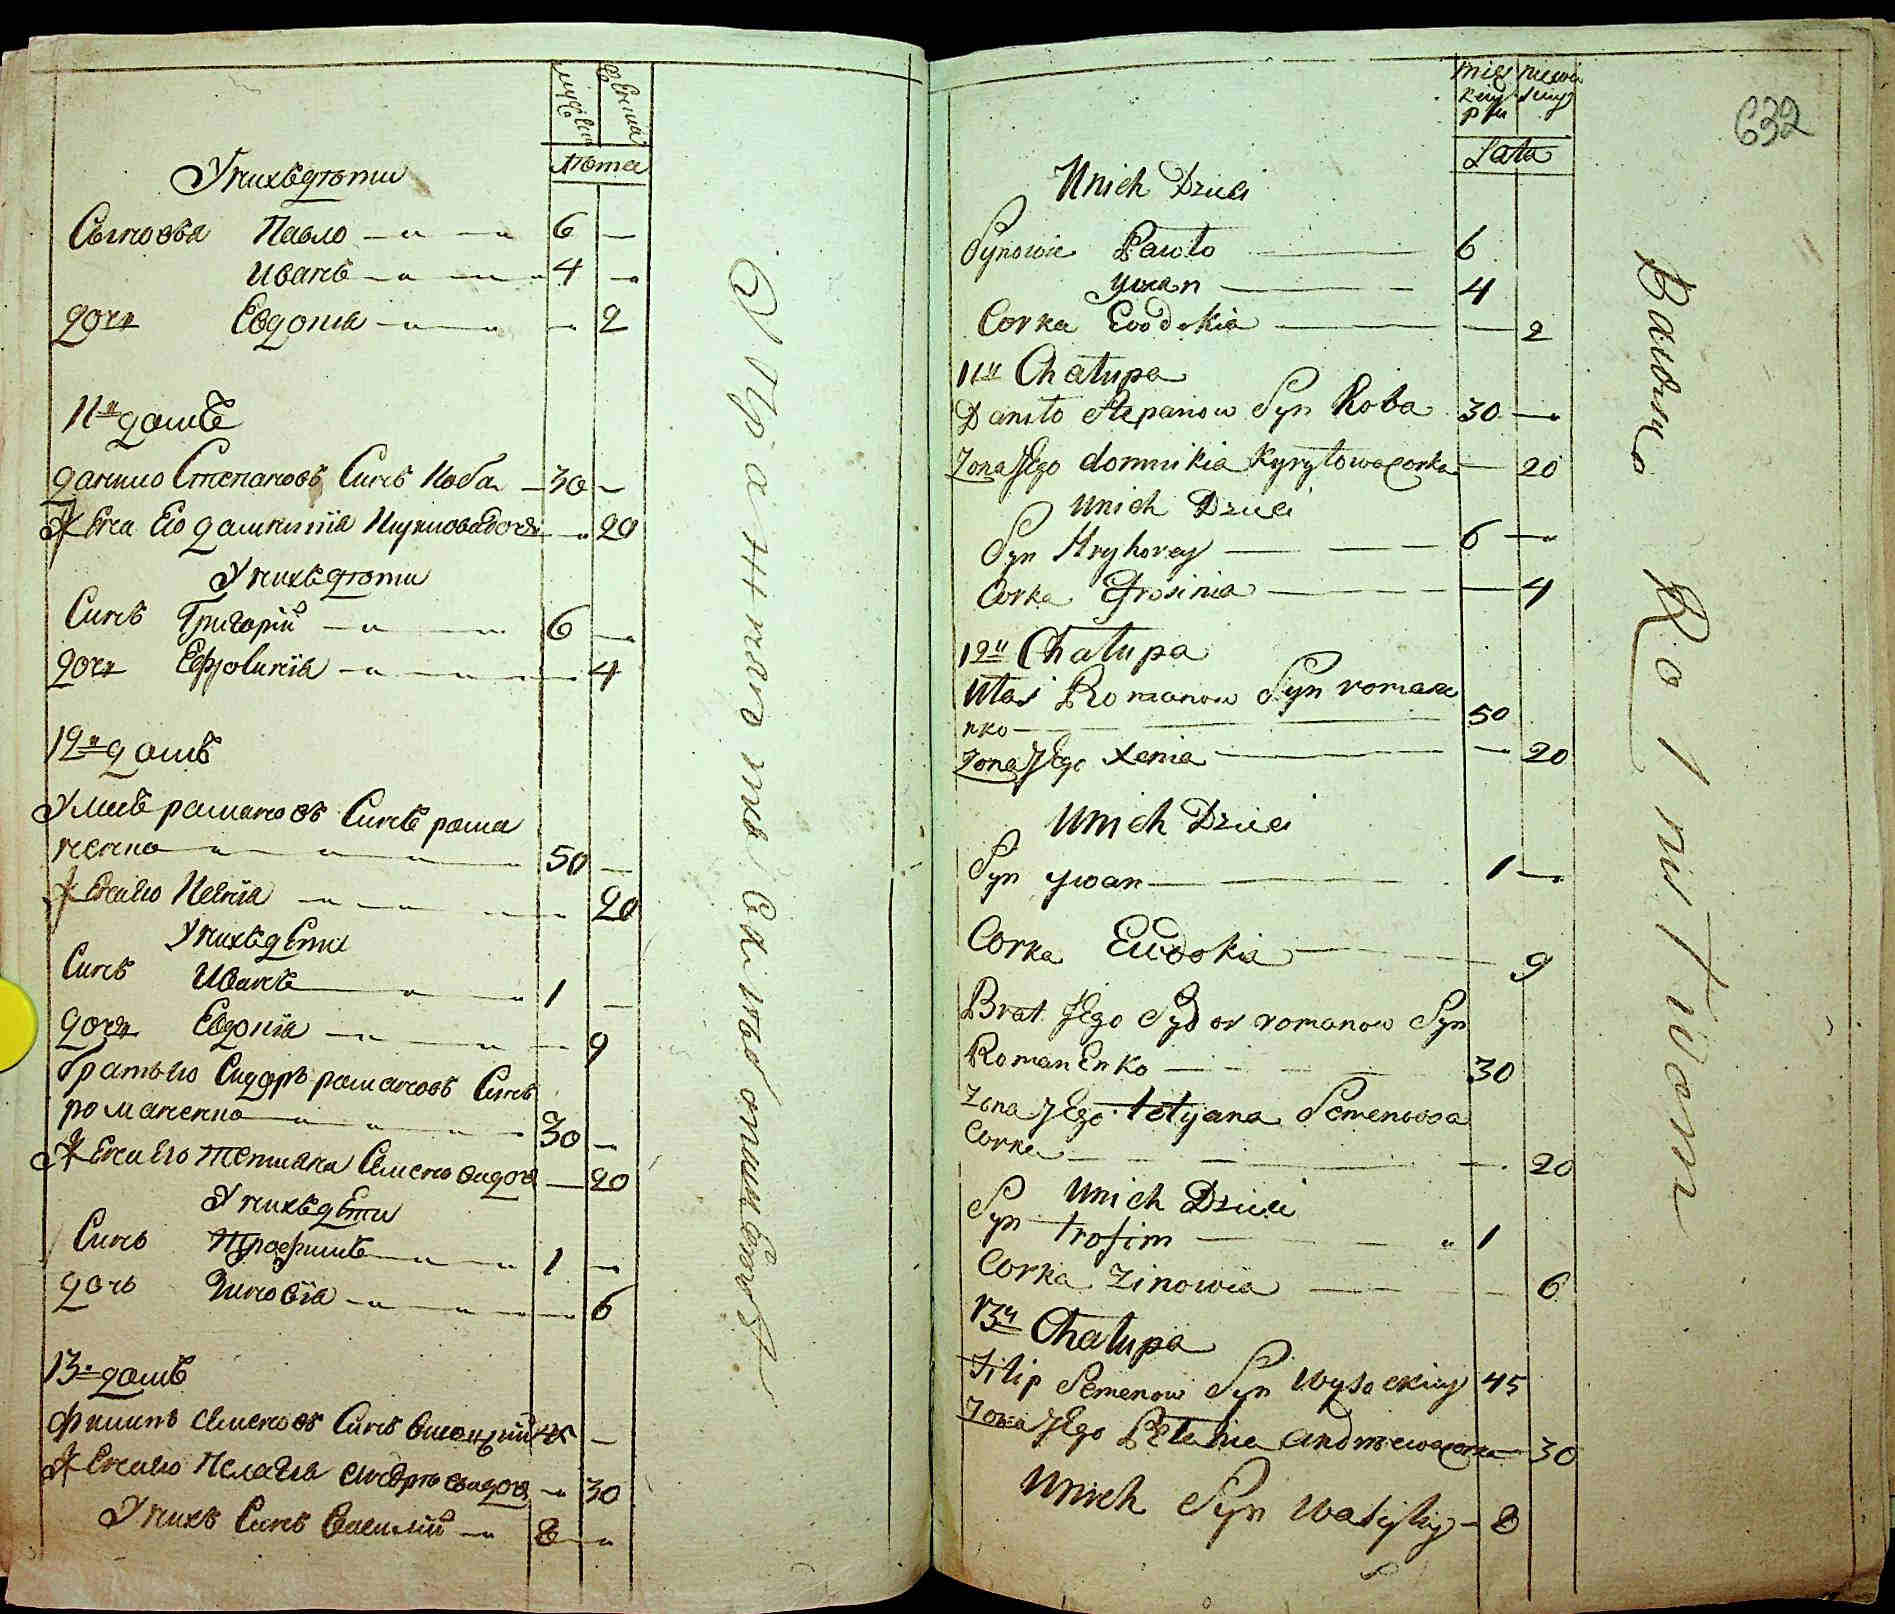 мужска
женска
лѣта
У нихъ дѣти
Сыновья Павло 6 —
Иванъ 4 —
дочь Евдокіа — 2
11й домъ
данило Степановъ Синъ Коба 30 —
Жена Его домникіа Кирилова дочь — 20
У нихъ дѣти
Синъ Григорій 6 —
дочь Ефросиніа — 4
12й домъ
Уласъ романовъ Синъ рома
ненко 50 —
Жена Его Ксеніа — 20
У нихъ дѣти
Синъ Иванъ 1 —
дочь Евдокіа — 9
братъ Его Сидоръ романовъ Синъ
романенко 30 —
Жена Его Тетиана Семенова доч — 20
У нихъ дѣти
Синъ Трофимъ 1 —
дочь Зиновіа — 6
13й домъ
Филипъ Семеновъ Синъ Високій 45 —
Жена Его Пелагиа дочь — 30
У нихъ Синъ Василій 8 —
632
Lata
Unich Dzieci
Synowie Pawło 6
Ywan 4
Corka Ewdokia — 2
11y Chałupa
Daniło Stepanow Syn Koba 30 —
Zona Jego domnikia Kyryłowa Corka — 20
Unich Dzieci
Syn Hryhorey 6 —
Corka Efrosinia — 4
12y Chałupa
Ułas Romanow Syn romane
nko 50
Zona Jego Xenia — 20
Unich Dzieci
Syn ywan 1 —
Corka Ewdokia 9
Brat Jego Sydor romanow Syn
RomanEnko 30
Zona Jego tetyana Semenowa
Corka — 20
Unich Dzieci
Syn trofim 1
Corka Zinowia — 6
13y Chałupa
Filip Semenow Syn Wysockiy 45
Zona Jego Pelahia Corka — 30
Unich Syn Wasyly — 8